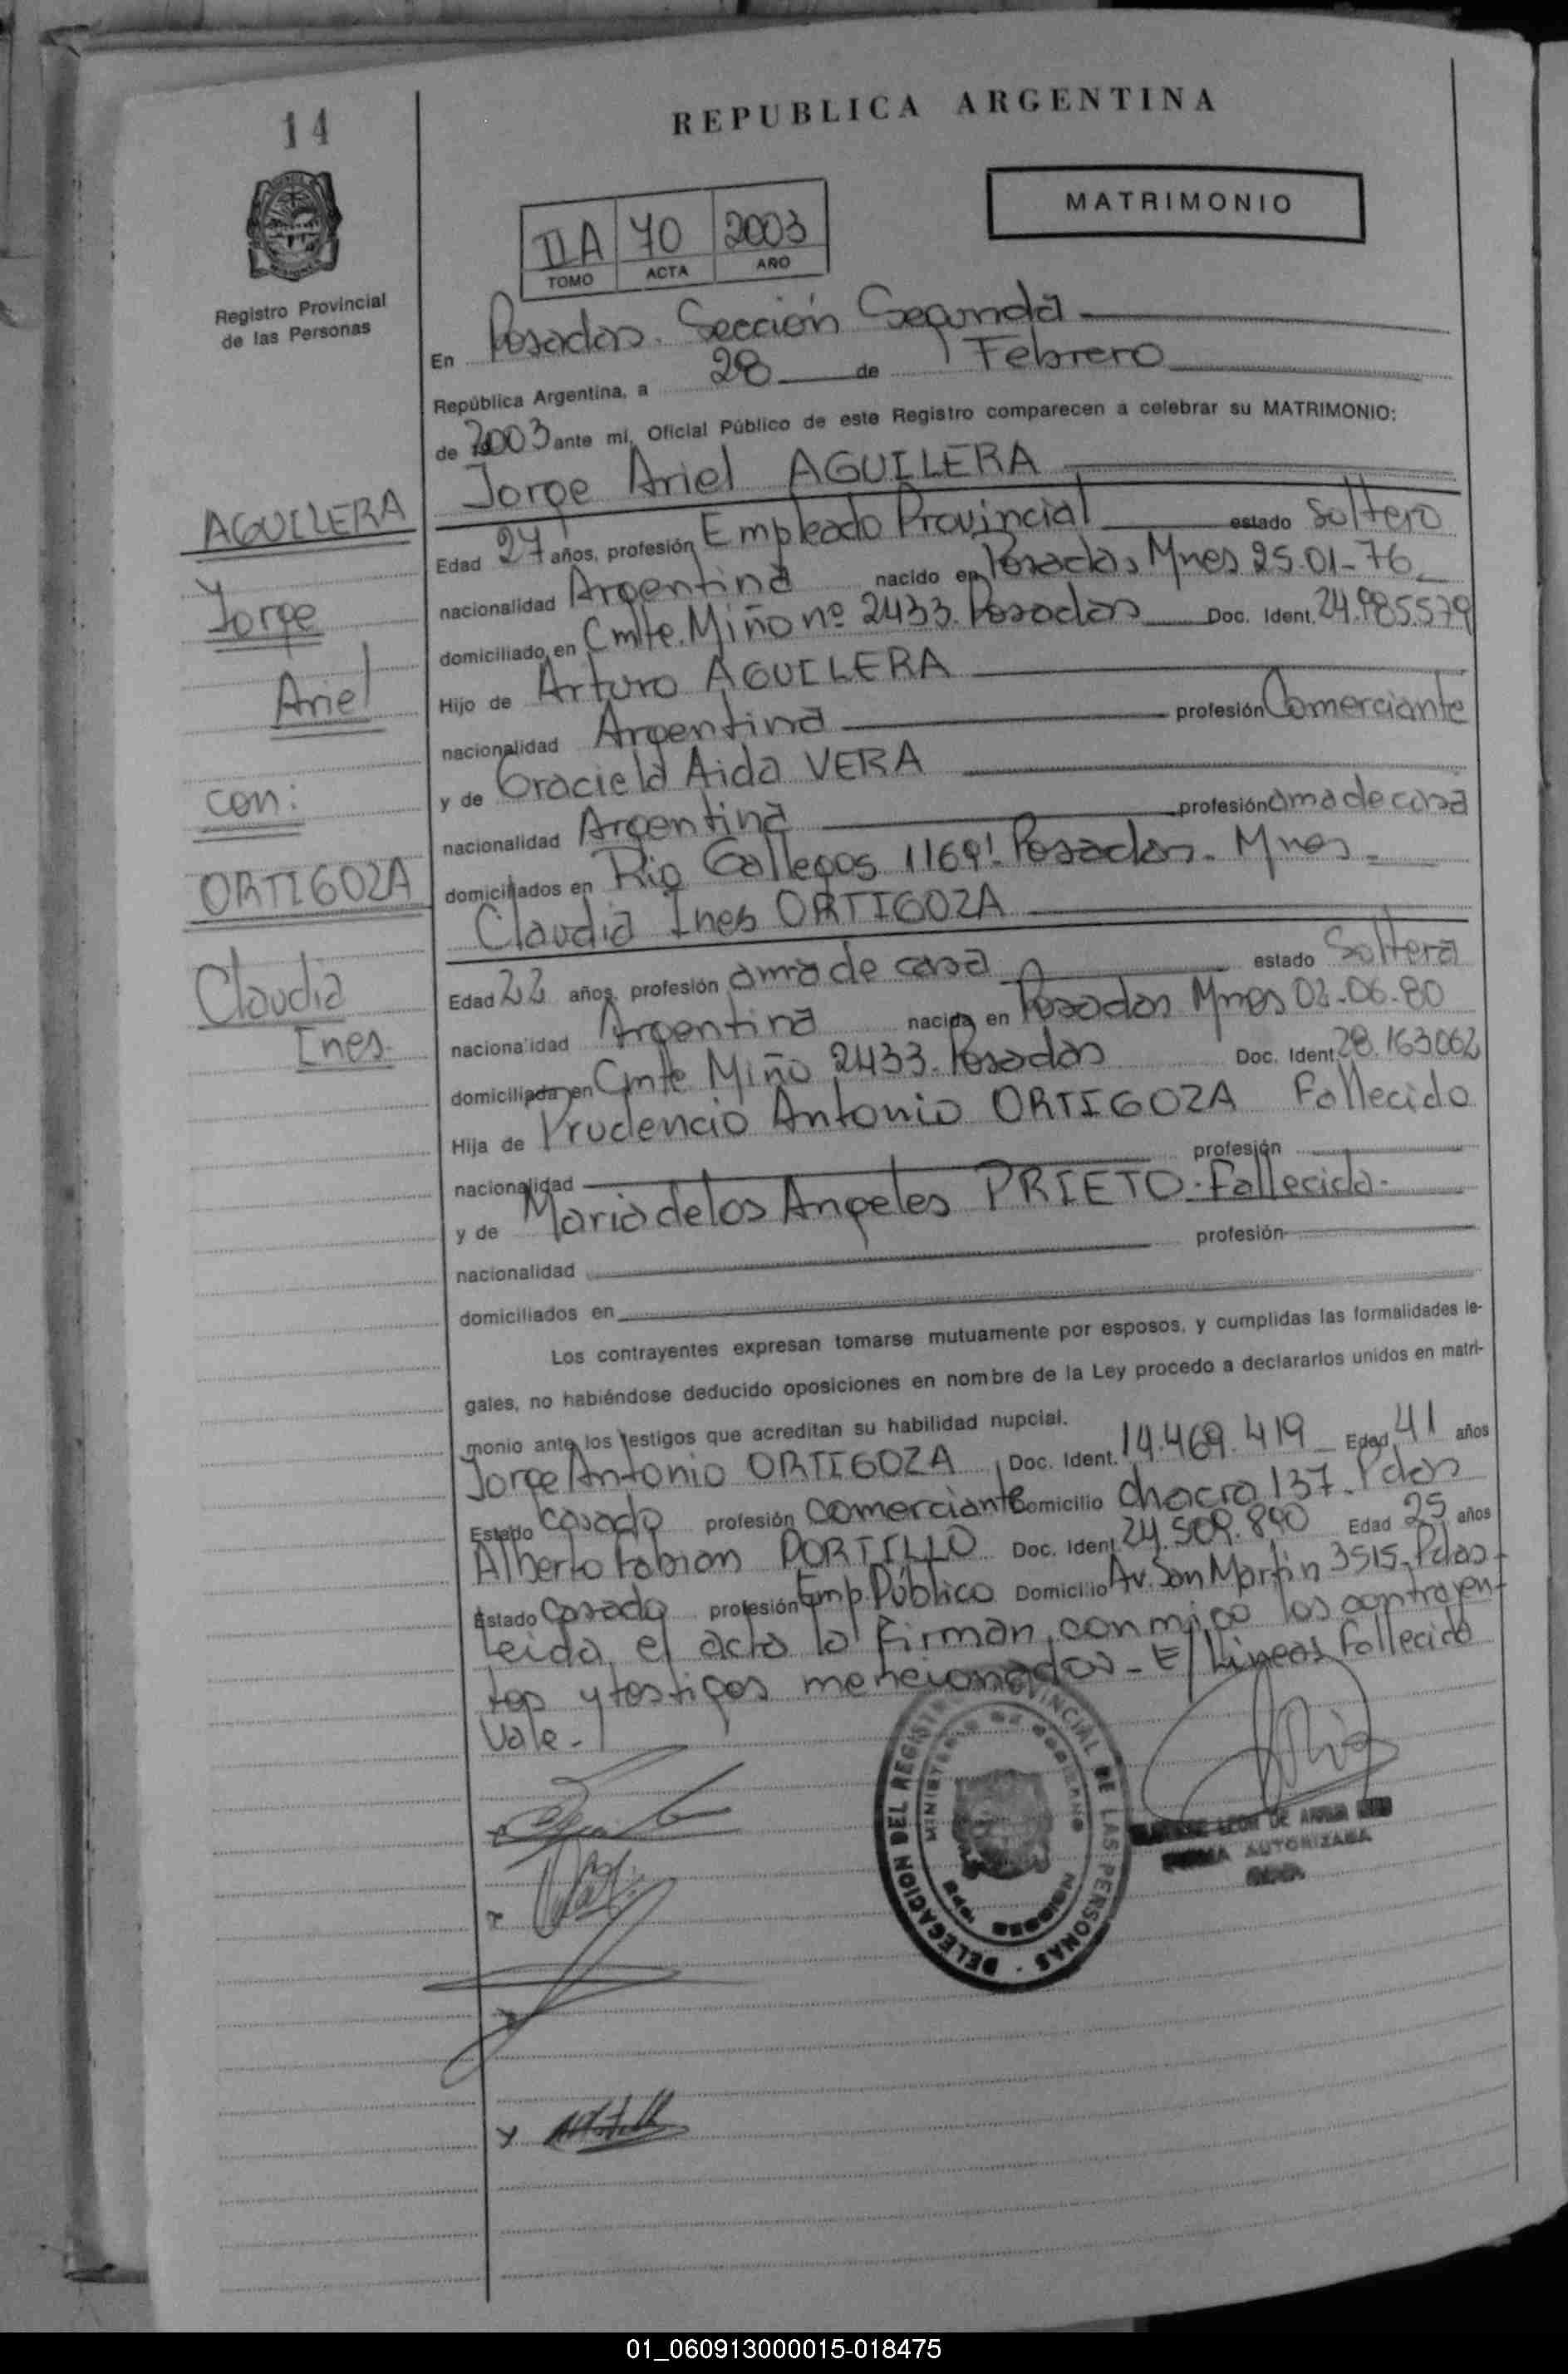 14
REPUBLICA ARGENTINA
MATRIMONIO
IIA 40 2003
TOMO ACTA AÑO
Registro Provincial
de las Personas
En Posadas. Sección Segunda
República Argentina, a 28 de Febrero
de 2003 ante mí, Oficial Público de este Registro comparecen a celebrar su MATRIMONIO:
Jorge Ariel AGUILERA
AGUILERA
Jorge
Ariel
con:
ORTIGOZA
Claudia
Ines.
Edad 27 años, profesión Empleado Provincial estado Soltero
nacionalidad Argentina nacido en Posadas Mnes 25-01-76
domiciliado en Cmte. Miño nº 2433. Posadas Doc. Ident. 24.985.579
Hijo de Arturo AGUILERA
nacionalidad Argentina profesión Comerciante
y de Graciela Aida VERA
nacionalidad Argentina profesión ama de casa
domiciliados en Rio Gallegos 1169. Posadas. Mnes
Claudia Ines ORTIGOZA
Edad 22 años, profesión ama de casa estado Soltera
nacionalidad Argentina nacida en Posadas Mnes 02-06-80
domiciliada en Cmte Miño 2433. Posadas Doc. Ident. 28.163062
Hija de Prudencio Antonio ORTIGOZA Fallecido
nacionalidad profesión
y de Maria de los Angeles PRIETO. Fallecida.
nacionalidad profesión
domiciliados en
Los contrayentes expresan tomarse mutuamente por esposos, y cumplidas las formalidades le-
gales, no habiéndose deducido oposiciones en nombre de la Ley procedo a declararlos unidos en matri-
monio ante los testigos que acreditan su habilidad nupcial.
Jorge Antonio ORTIGOZA Doc. Ident. 14.469.419 Edad 41 años
Estado Casado profesión comerciante Domicilio chacra 137. Pdas
Alberto Fabian PORTILLO Doc. Ident. 24.509.890 Edad 25 años
Estado Casado profesión Emp. Público Domicilio Av. San Martin 3515. Pdas.
Leida el acta la firman conmigo los contrayen-
tes y testigos mencionados - E/ Lineas Fallecido
Vale -
DELEGACION DEL REGISTRO PROVINCIAL DE LAS PERSONAS
MINISTERIO DE GOBIERNO
LEON DE
FIRMA AUTORIZADA
01_060913000015-018475